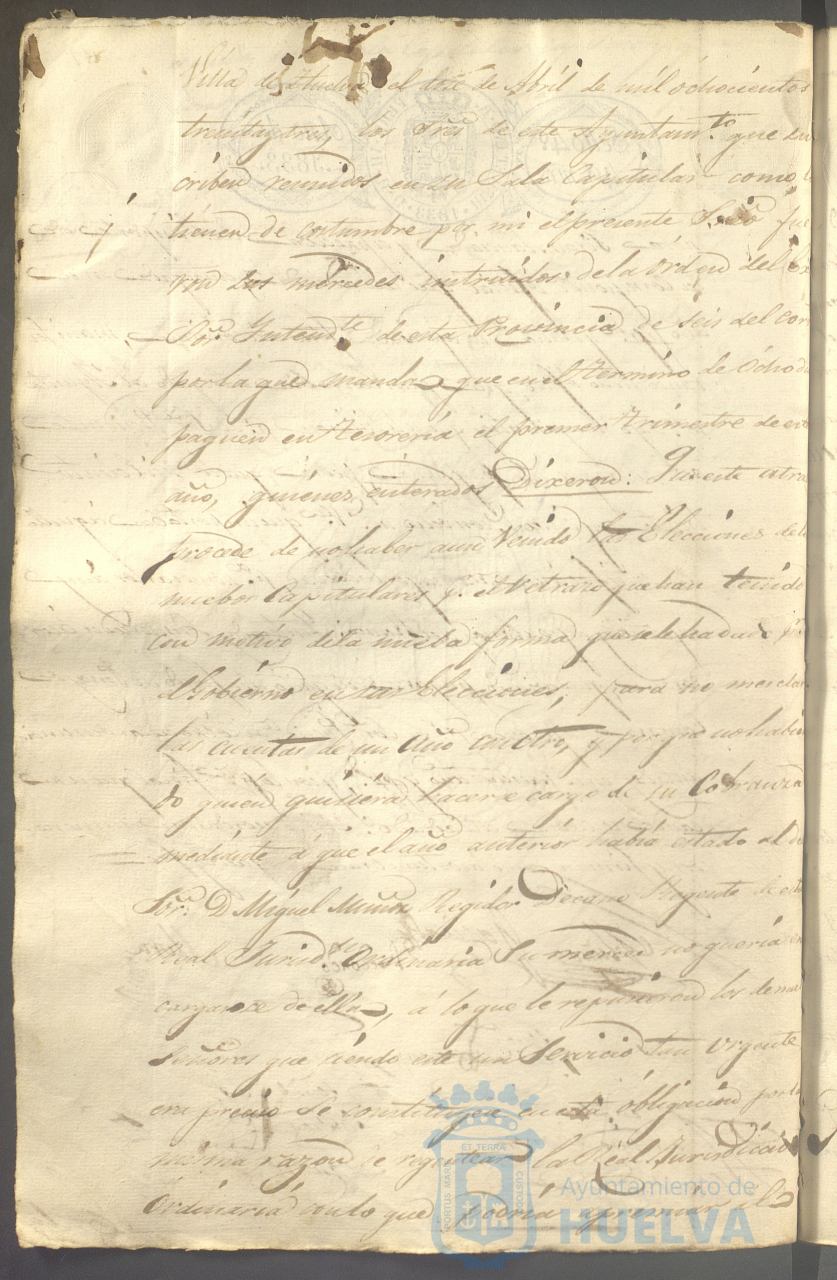 Villa de Huelva el dia de Abril de mil ochocientos
treintaytres, los Sres de este Ayuntam.to que su
criben reunidos en su Sala Capitular como lo
tienen de costumbre por mi el presente Sno fue
ron sus mercedes intruidos de la orden del
Sor. Intend.te de esta Provincia de seis del corr
por la que manda que en el termino de ocho di
paguen en Tesoreria el primer trimestre de este
año, quienes enterados Dixeron: Que este atra
procede de no haber aun Venido las Elecciones de lo
nuebos Capitulares y el retrazo que han tenido
con motivo de la nueba forma que se le ha dado p.r
el Gobierno en sus Elecciones, para no mesclar
las cuentas de un año con otro, y por que no habi
do quien quisiera hacerse cargo de su Cobranza
mediante á que el año anterior habia estado al
Sor. D. Miguel Muñiz Regidor Decano Regente de esta
Real Jurisd.on Ordinaria Su merced no queria en
cargarse de ella, á lo que le repusieron los demas
Señores que siendo este un Servicio tan Urgente
era preciso se constituyera en esta obligacion por la
misma razon de regentear la Real Jurisdiccion
Ordinaria con lo que podria apremiar al
PORTUS MARIS ET TERRAE CUSTODIA
Ayuntamiento de
HUELVA